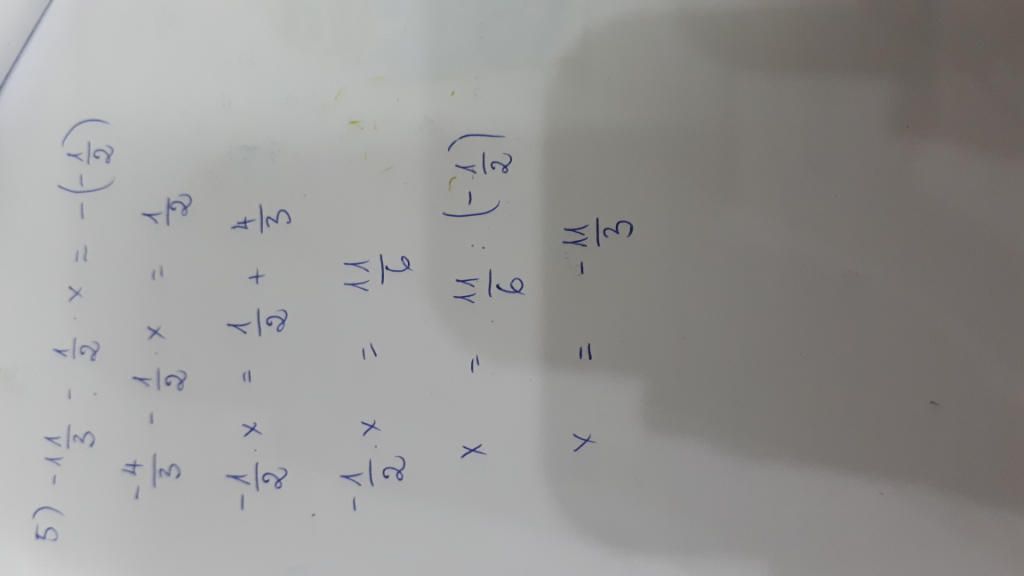 5) -1 1/3 - 1/2 · x = -(-1/2)
-4/3 - 1/2 · x = 1/2
-1/2 · x = 1/2 + 4/3
-1/2 · x = 11/6
x = 11/6 : (-1/2)
x = -11/3